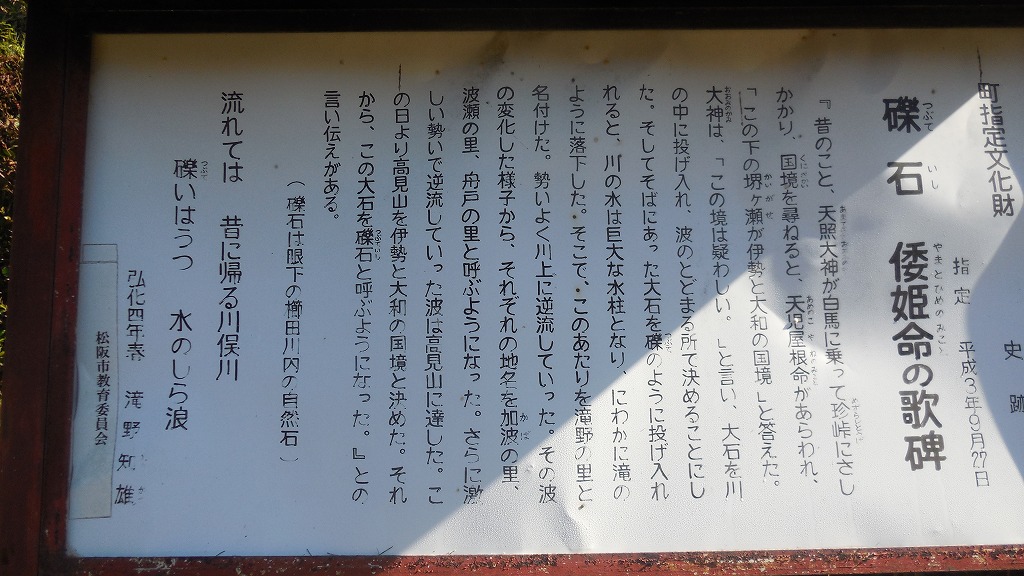 町指定文化財
史跡
指定 平成3年9月27日
礫石 倭姫命の歌碑
『昔のこと、天照大神が白馬に乗って珍峠にさし
かかり、国境を尋ねると、天児屋根命があらわれ、
「この下の堺ヶ瀬が伊勢と大和の国境」と答えた。
大神は、「この境は疑わしい。」と言い、大石を川
の中に投げ入れ、波のとどまる所で決めることにし
た。そしてそばにあった大石を礫のように投げ入れ
れると、川の水は巨大な水柱となり、にわかに滝の
ように落下した。そこで、このあたりを滝野の里と
名付けた。勢いよく川上に逆流していった。その波
の変化した様子から、それぞれの地名を加波の里、
波瀬の里、舟戸の里と呼ぶようになった。さらに激
しい勢いで逆流していった波は高見山に達した。こ
の日より高見山を伊勢と大和の国境と決めた。それ
から、この大石を礫石と呼ぶようになった。』との
言い伝えがある。
(礫石は眼下の櫛田川内の自然石)
流れては 昔に帰る川俣川
礫いはうつ 水のしら浪
弘化四年春 滝野知雄
松阪市教育委員会